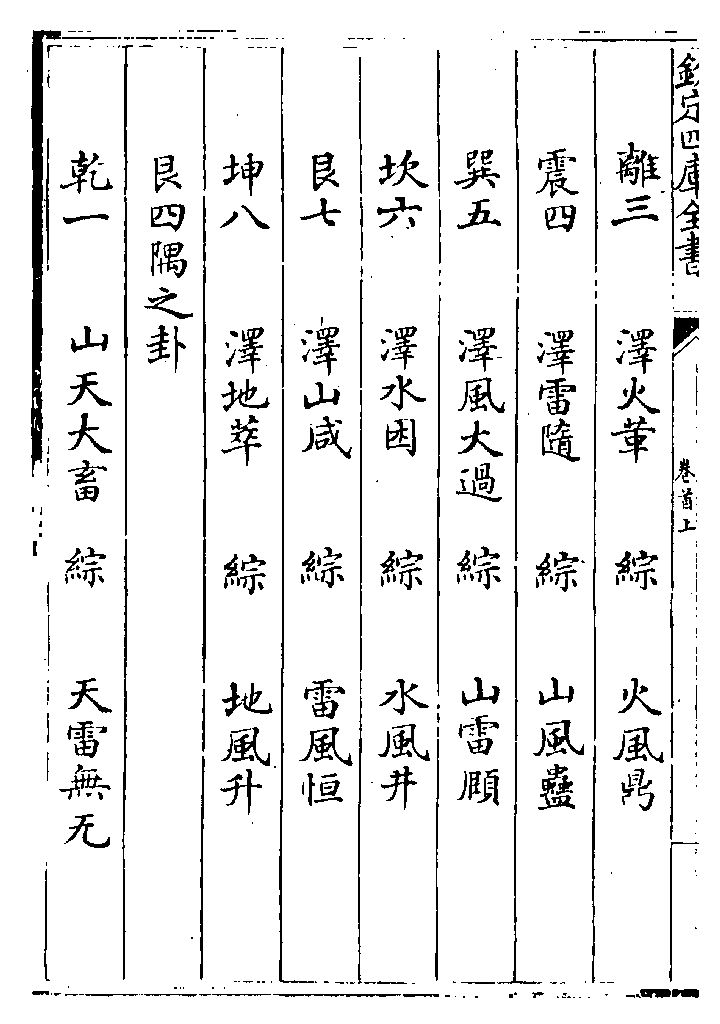 欽定四庫全書
卷首上
離三 澤火革 綜 火風鼎
震四 澤雷隨 綜 山風蠱
巽五 澤風大過 綜 山雷頤
坎六 澤水困 綜 水風井
艮七 澤山咸 綜 雷風恒
坤八 澤地萃 綜 地風升
艮四隅之卦
乾一 山天大畜 綜 天雷無无